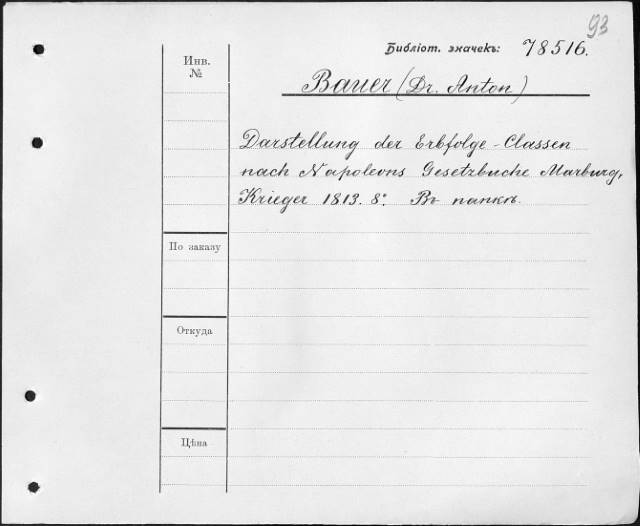 93
Библіот. значекъ: 78516.
Инв.
№
Bauer (Dr. Anton)
Darstellung der Erbfolge-Classen
nach Napoleons Gesetzbuche Marburg,
Krieger 1813. 8°. Въ папкѣ.
По заказу
Откуда
Цѣна